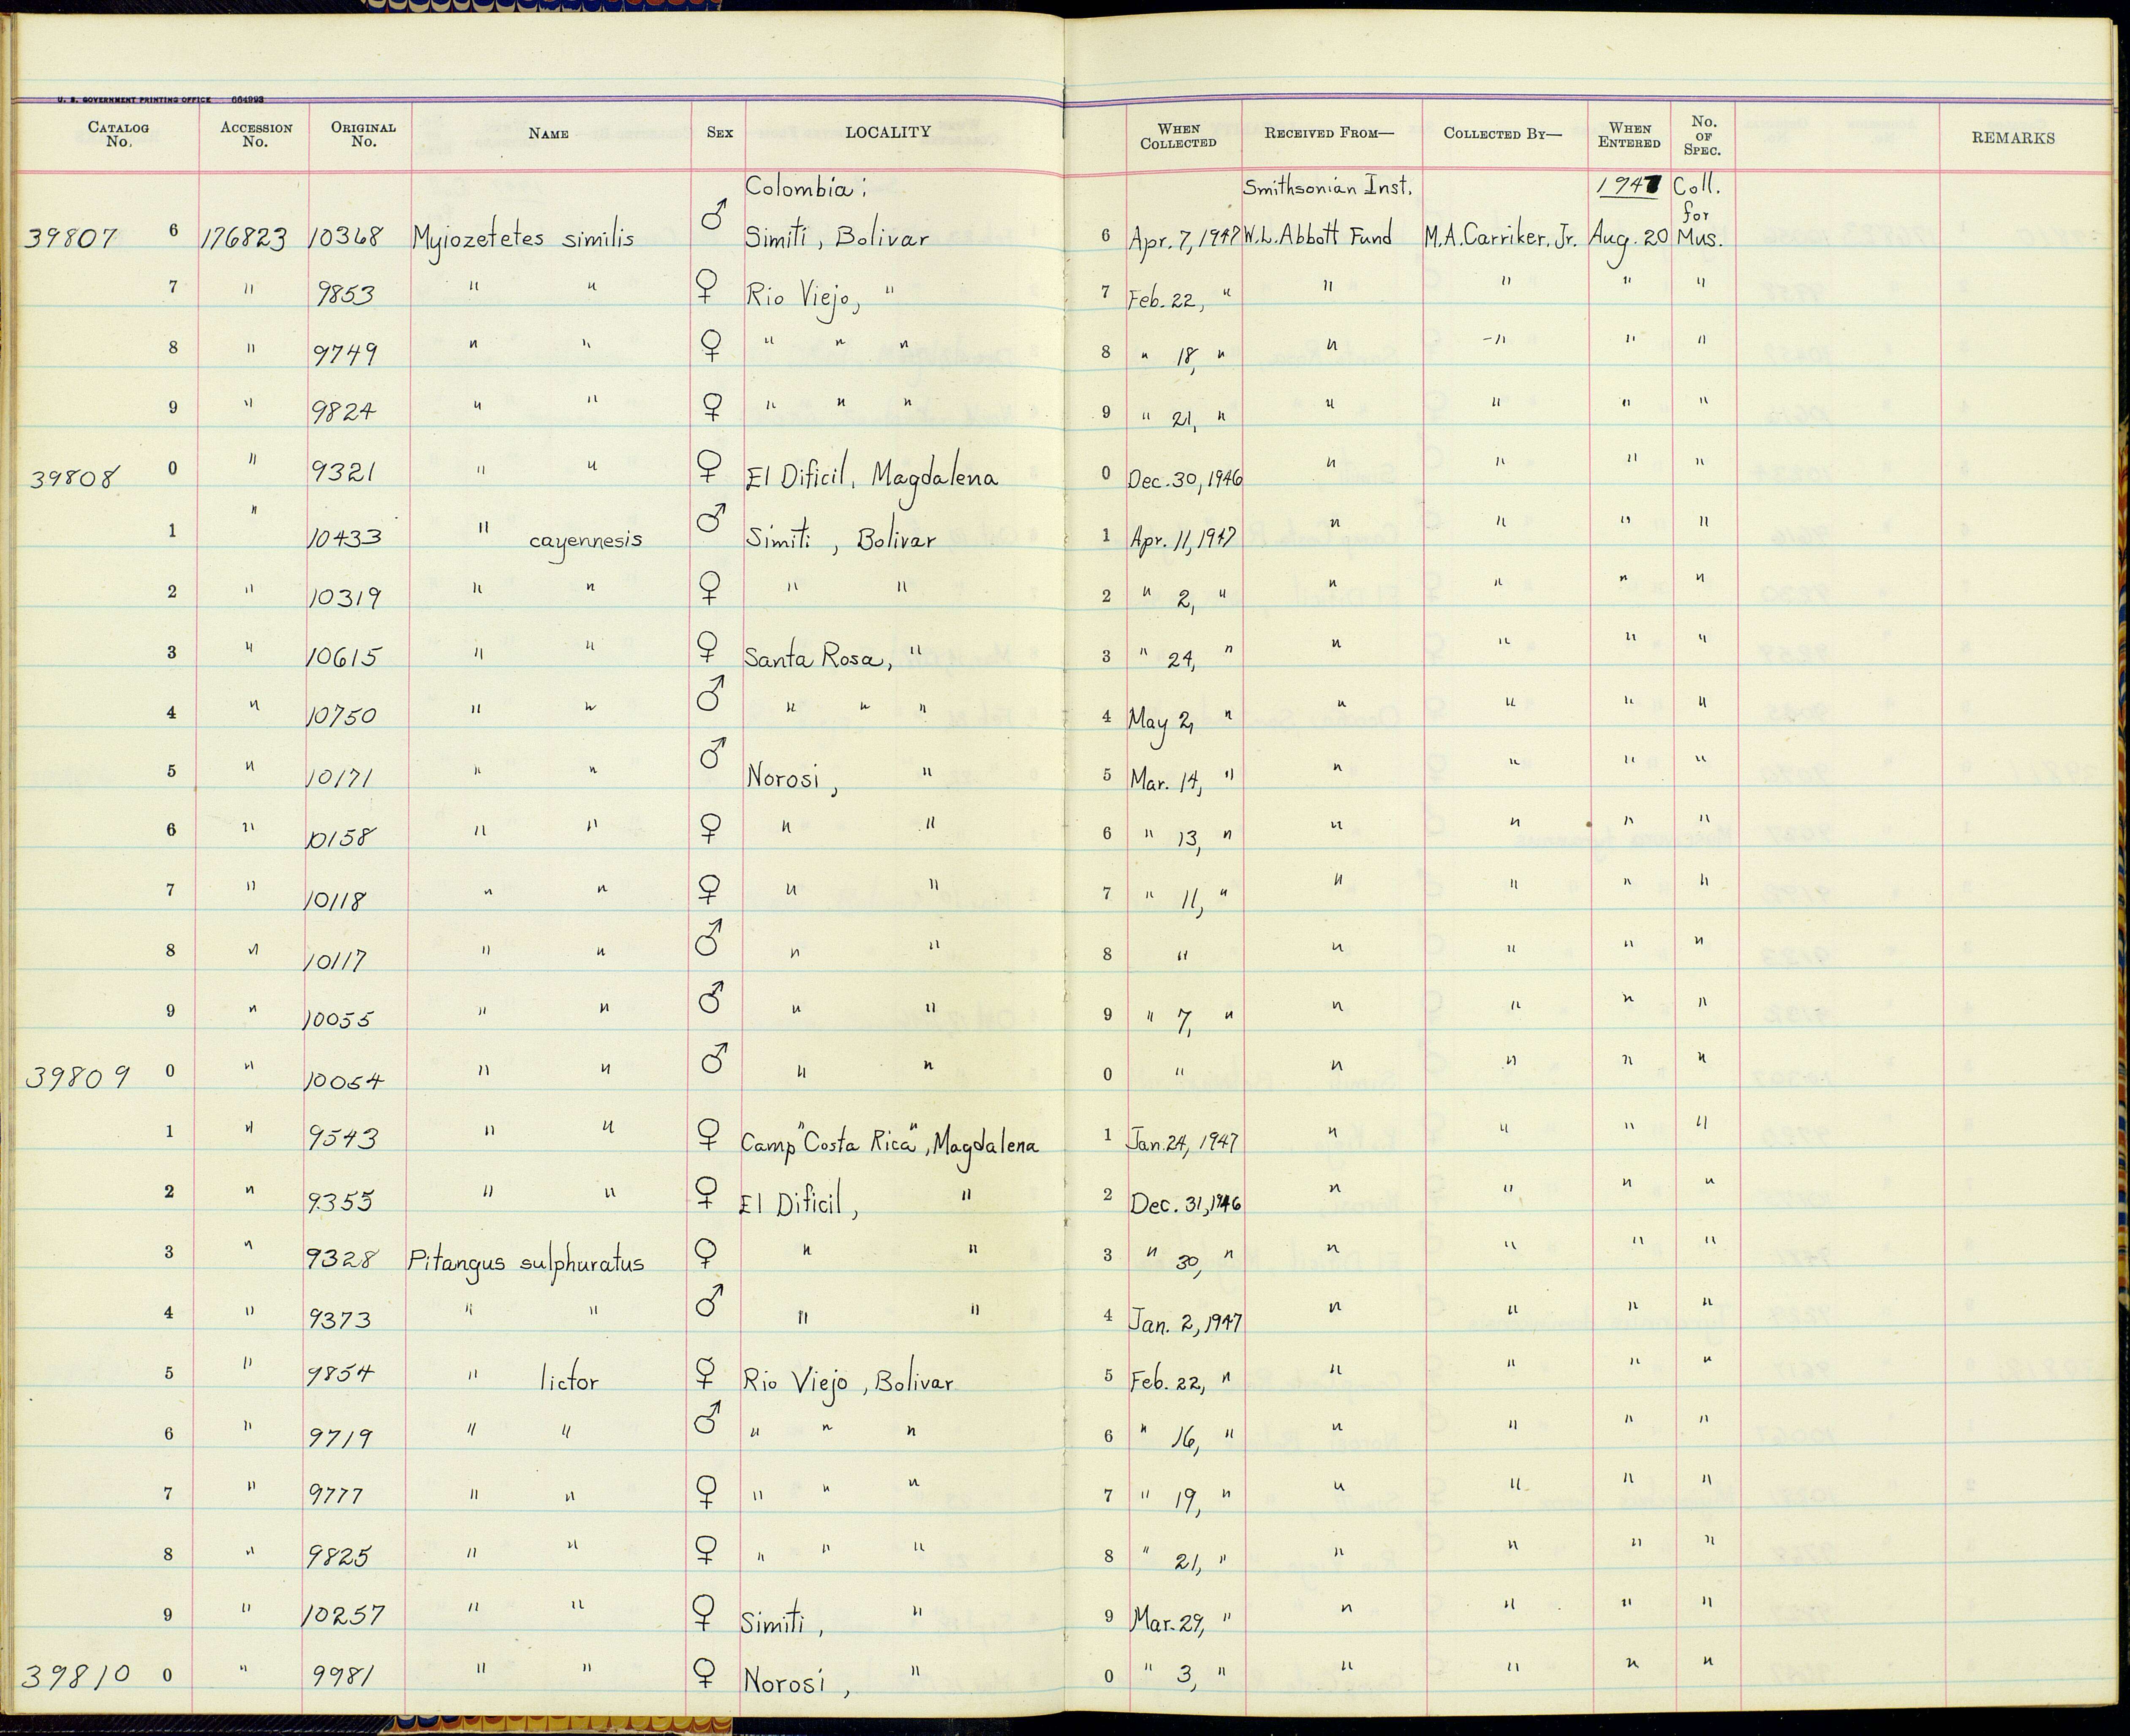 U. S. GOVERNMENT PRINTING OFFICE 664993
CATALOG No. ACCESSION No. ORIGINAL No. NAME SEX LOCALITY WHEN COLLECTED RECEIVED FROM— COLLECTED BY— WHEN ENTERED No. OF SPEC. REMARKS
Colombia: Smithsonian Inst. 1947 Coll. for
39807 6 176823 10368 Myiozetetes similis ♂ Simiti, Bolivar 6 Apr. 7, 1947 W.L. Abbott Fund M.A. Carriker, Jr. Aug. 20 Mus.
7 " 9853 " " ♀ Rio Viejo, " 7 Feb. 22, " " " " "
8 " 9749 " " ♀ " " " 8 " 18, " " " " "
9 " 9824 " " ♀ " " " 9 " 21, " " " " "
39808 0 " 9321 " " ♀ El Dificil, Magdalena 0 Dec. 30, 1946 " " " "
1 " 10433 " cayennesis ♂ Simiti, Bolivar 1 Apr. 11, 1947 " " " "
2 " 10319 " " ♀ " " 2 " 2, " " " " "
3 " 10615 " " ♀ Santa Rosa, " 3 " 24, " " " " "
4 " 10750 " " ♂ " " " 4 May 2, " " " " "
5 " 10171 " " ♂ Norosi, " 5 Mar. 14, " " " " "
6 " 10158 " " ♀ " " 6 " 13, " " " " "
7 " 10118 " " ♀ " " 7 " 11, " " " " "
8 " 10117 " " ♂ " " 8 " " " " "
9 " 10055 " " ♂ " " 9 " 7, " " " " "
39809 0 " 10054 " " ♂ " " 0 " " " " "
1 " 9543 " " ♀ Camp "Costa Rica", Magdalena 1 Jan. 24, 1947 " " " "
2 " 9355 " " ♀ El Dificil, " 2 Dec. 31, 1946 " " " "
3 " 9328 Pitangus sulphuratus ♀ " " 3 " 30, " " " " "
4 " 9373 " " ♂ " " 4 Jan. 2, 1947 " " " "
5 " 9854 " lictor ♀ Rio Viejo, Bolivar 5 Feb. 22, " " " " "
6 " 9719 " " ♂ " " " 6 " 16, " " " " "
7 " 9777 " " ♀ " " " 7 " 19, " " " " "
8 " 9825 " " ♀ " " " 8 " 21, " " " " "
9 " 10257 " " ♀ Simiti, " 9 Mar. 29, " " " " "
39810 0 " 9981 " " ♀ Norosi, " 0 " 3, " " " " "